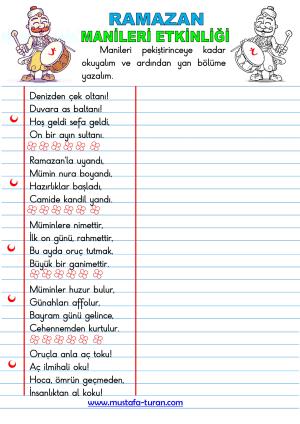 RAMAZAN
MANİLERİ ETKİNLİĞİ
Manileri pekiştirinceye kadar
okuyalım ve ardından yan bölüme
yazalım.
Denizden çek oltanı!
Duvara as baltanı!
Hoş geldi sefa geldi,
On bir ayın sultanı.
Ramazan'la uyandı,
Mümin nura boyandı,
Hazırlıklar başladı,
Camide kandil yandı.
Müminlere nimettir,
İlk on günü, rahmettir,
Bu ayda oruç tutmak,
Büyük bir ganimettir.
Müminler huzur bulur,
Günahları affolur,
Bayram günü gelince,
Cehennemden kurtulur.
Oruçla anla aç toku!
Aç ilmihali oku!
Hoca, ömrün geçmeden,
İnsanlıktan al koku!
www.mustafa-turan.com